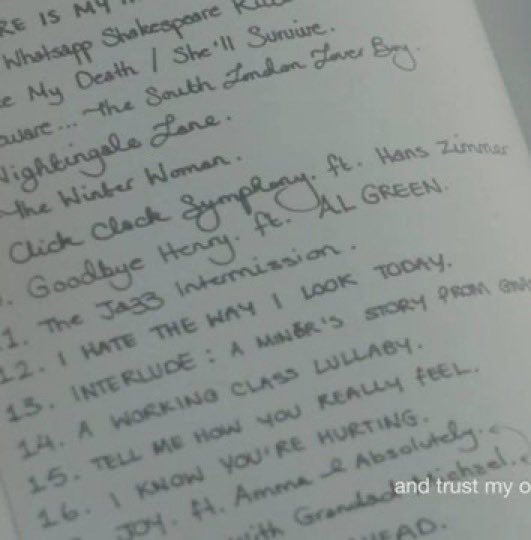 RE IS MY
Whatsapp Shakespeare
e My Death / She'll Survive.
ware... The South London Lover Boy.
Nightingale Lane.
The Winter Woman.
Click Clack Symphony. ft. Hans Zimmer
. Goodbye Henry. ft. AL GREEN.
1. The Jazz Intermission.
12. I HATE THE WAY I LOOK TODAY.
13. INTERLUDE: A MINER'S STORY FROM
14. A WORKING CLASS LULLABY.
15. TELL ME HOW YOU REALLY FEEL.
16. I KNOW YOU'RE HURTING.
JOY. ft. Amma & Absolutely.
with Grandad Michael.
HEAD.
and trust my o